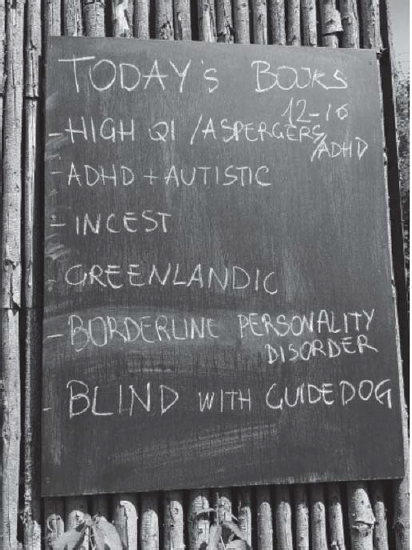 TODAY's BOOKS
12-16
-HIGH QI /ASPERGERS
/ADHD
-ADHD + AUTISTIC
-INCEST
-GREENLANDIC
-BORDERLINE PERSONALITY
DISORDER
-BLIND WITH GUIDEDOG